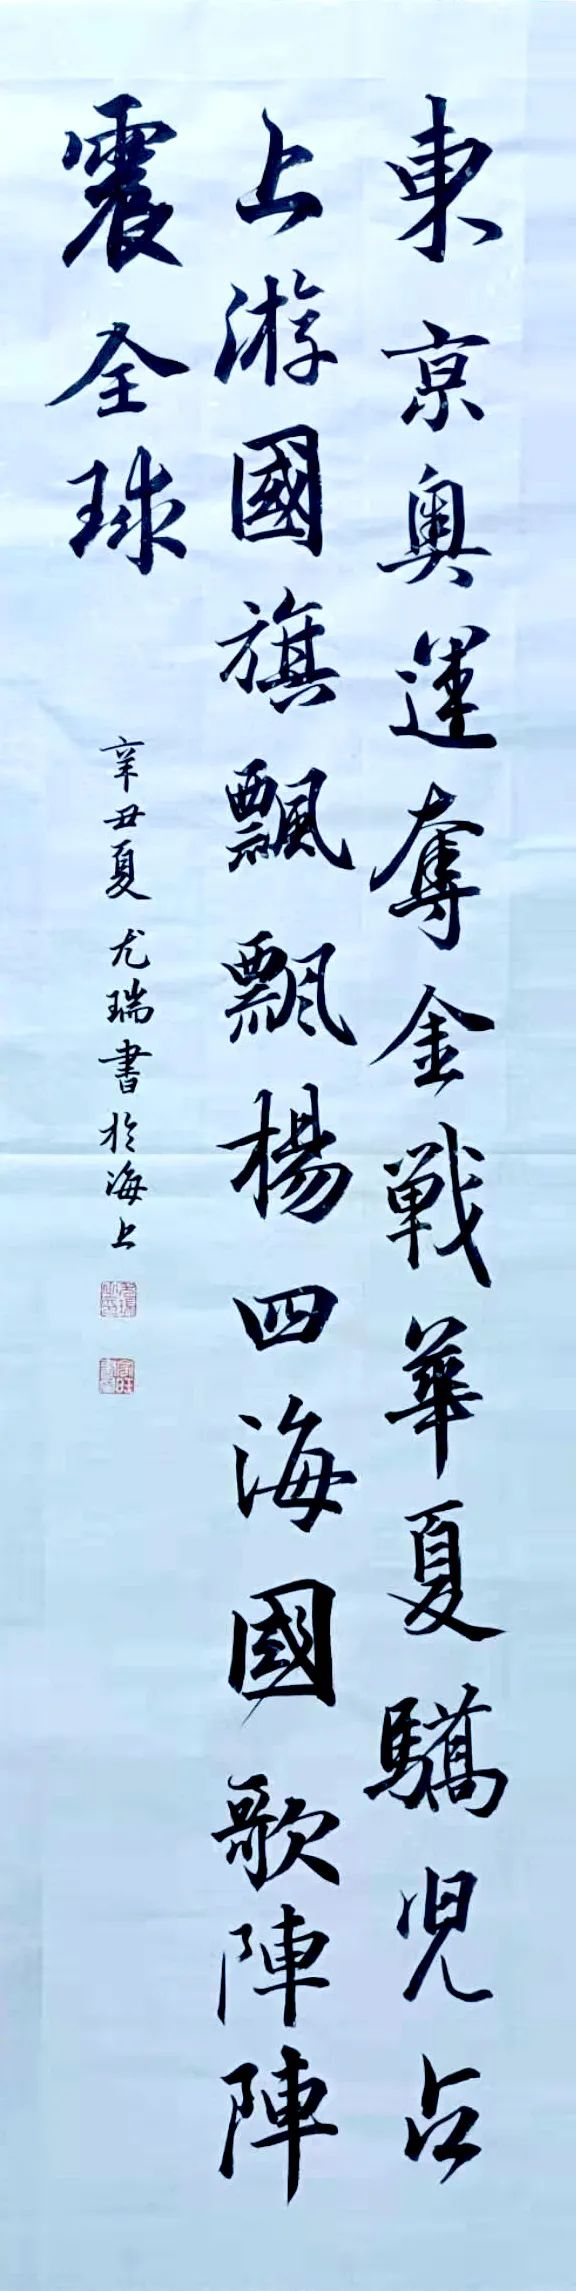 東京奥運奪金戰華夏驕児占
上游國旗飄飄楊四海國歌陣陣
震全球
辛丑夏尤瑞書於海上